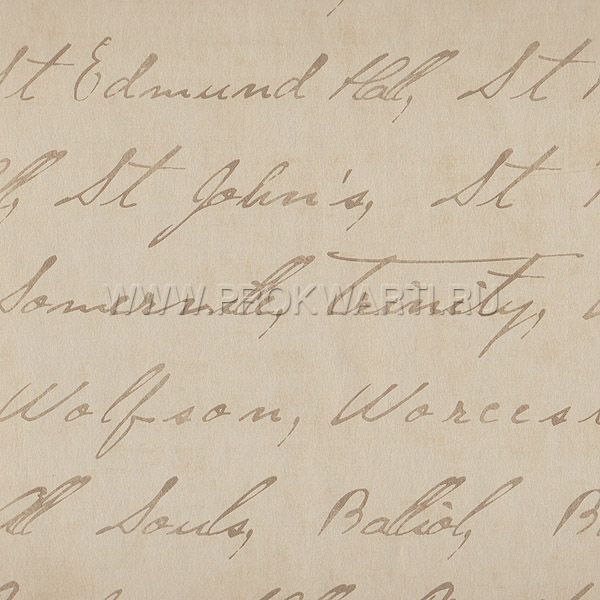 St Edmund Hall, St
St John's, St
Somerville, Trinity,
WWW.PROKWARTI.RU
Wolfson, Worcest
All Souls, Balliol, B